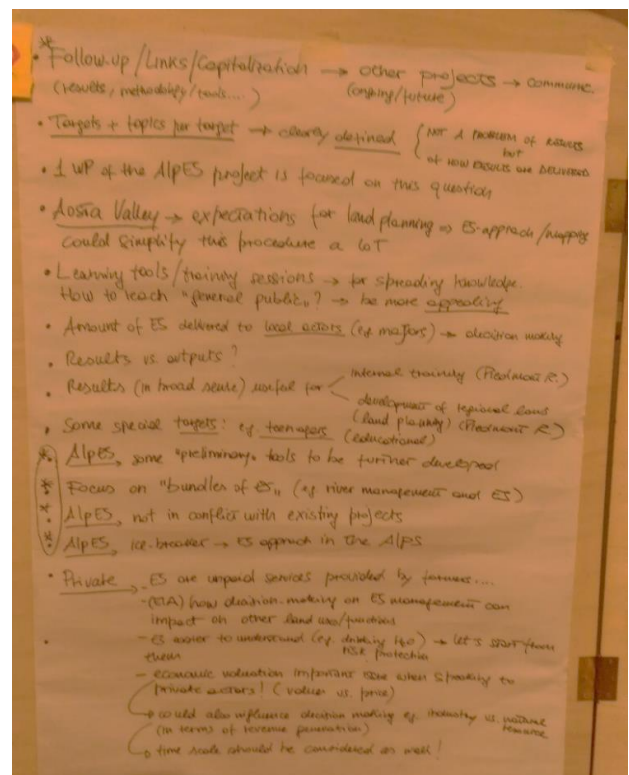 * Follow-up/Links/Capitalization → other projects → commun.
(results, methodology/tools....) (ongoing/future)
• Targets + topics per target → clearly defined { NOT A PROBLEM OF RESULTS
BUT
OF HOW RESULTS ARE DELIVERED
• 1 WP of the AlpES project is focused on this question
• Aosta Valley → expectations for land planning ⇒ ES-approach/mapping
could simplify this procedure a LOT
• Learning tools/training sessions → for spreading knowledge.
How to reach "general public"? → be more appealing
• Amount of ES delivered to local actors (eg. majors) → decision making
• Results vs. outputs?
• Results (in broad sense) useful for internal training (Piedmont R.)
development of regional land
(land planning) (Piedmont R.)
• Some special targets: eg. teenagers (educational)
*• AlpES, some "preliminary" tools to be further developed
** Focus on "bundles of ES" (eg river management and ES)
*• AlpES, not in conflict with existing projects
*• AlpES, ice-breaker → ES approach in the Alps
• Private - ES are unpaid services provided by farmers....
- how decision-making on ES management can
impact on other land uses/functions
- ES easier to understand (eg. drinking H2O) → let's start from
RISK protection
them
- economic valuation important issue when speaking to
private actors! (value vs. price)
↳ could also influence decision making eg. industry vs. natural
resource
(in terms of revenue generation)
↳ time scale should be considered as well!